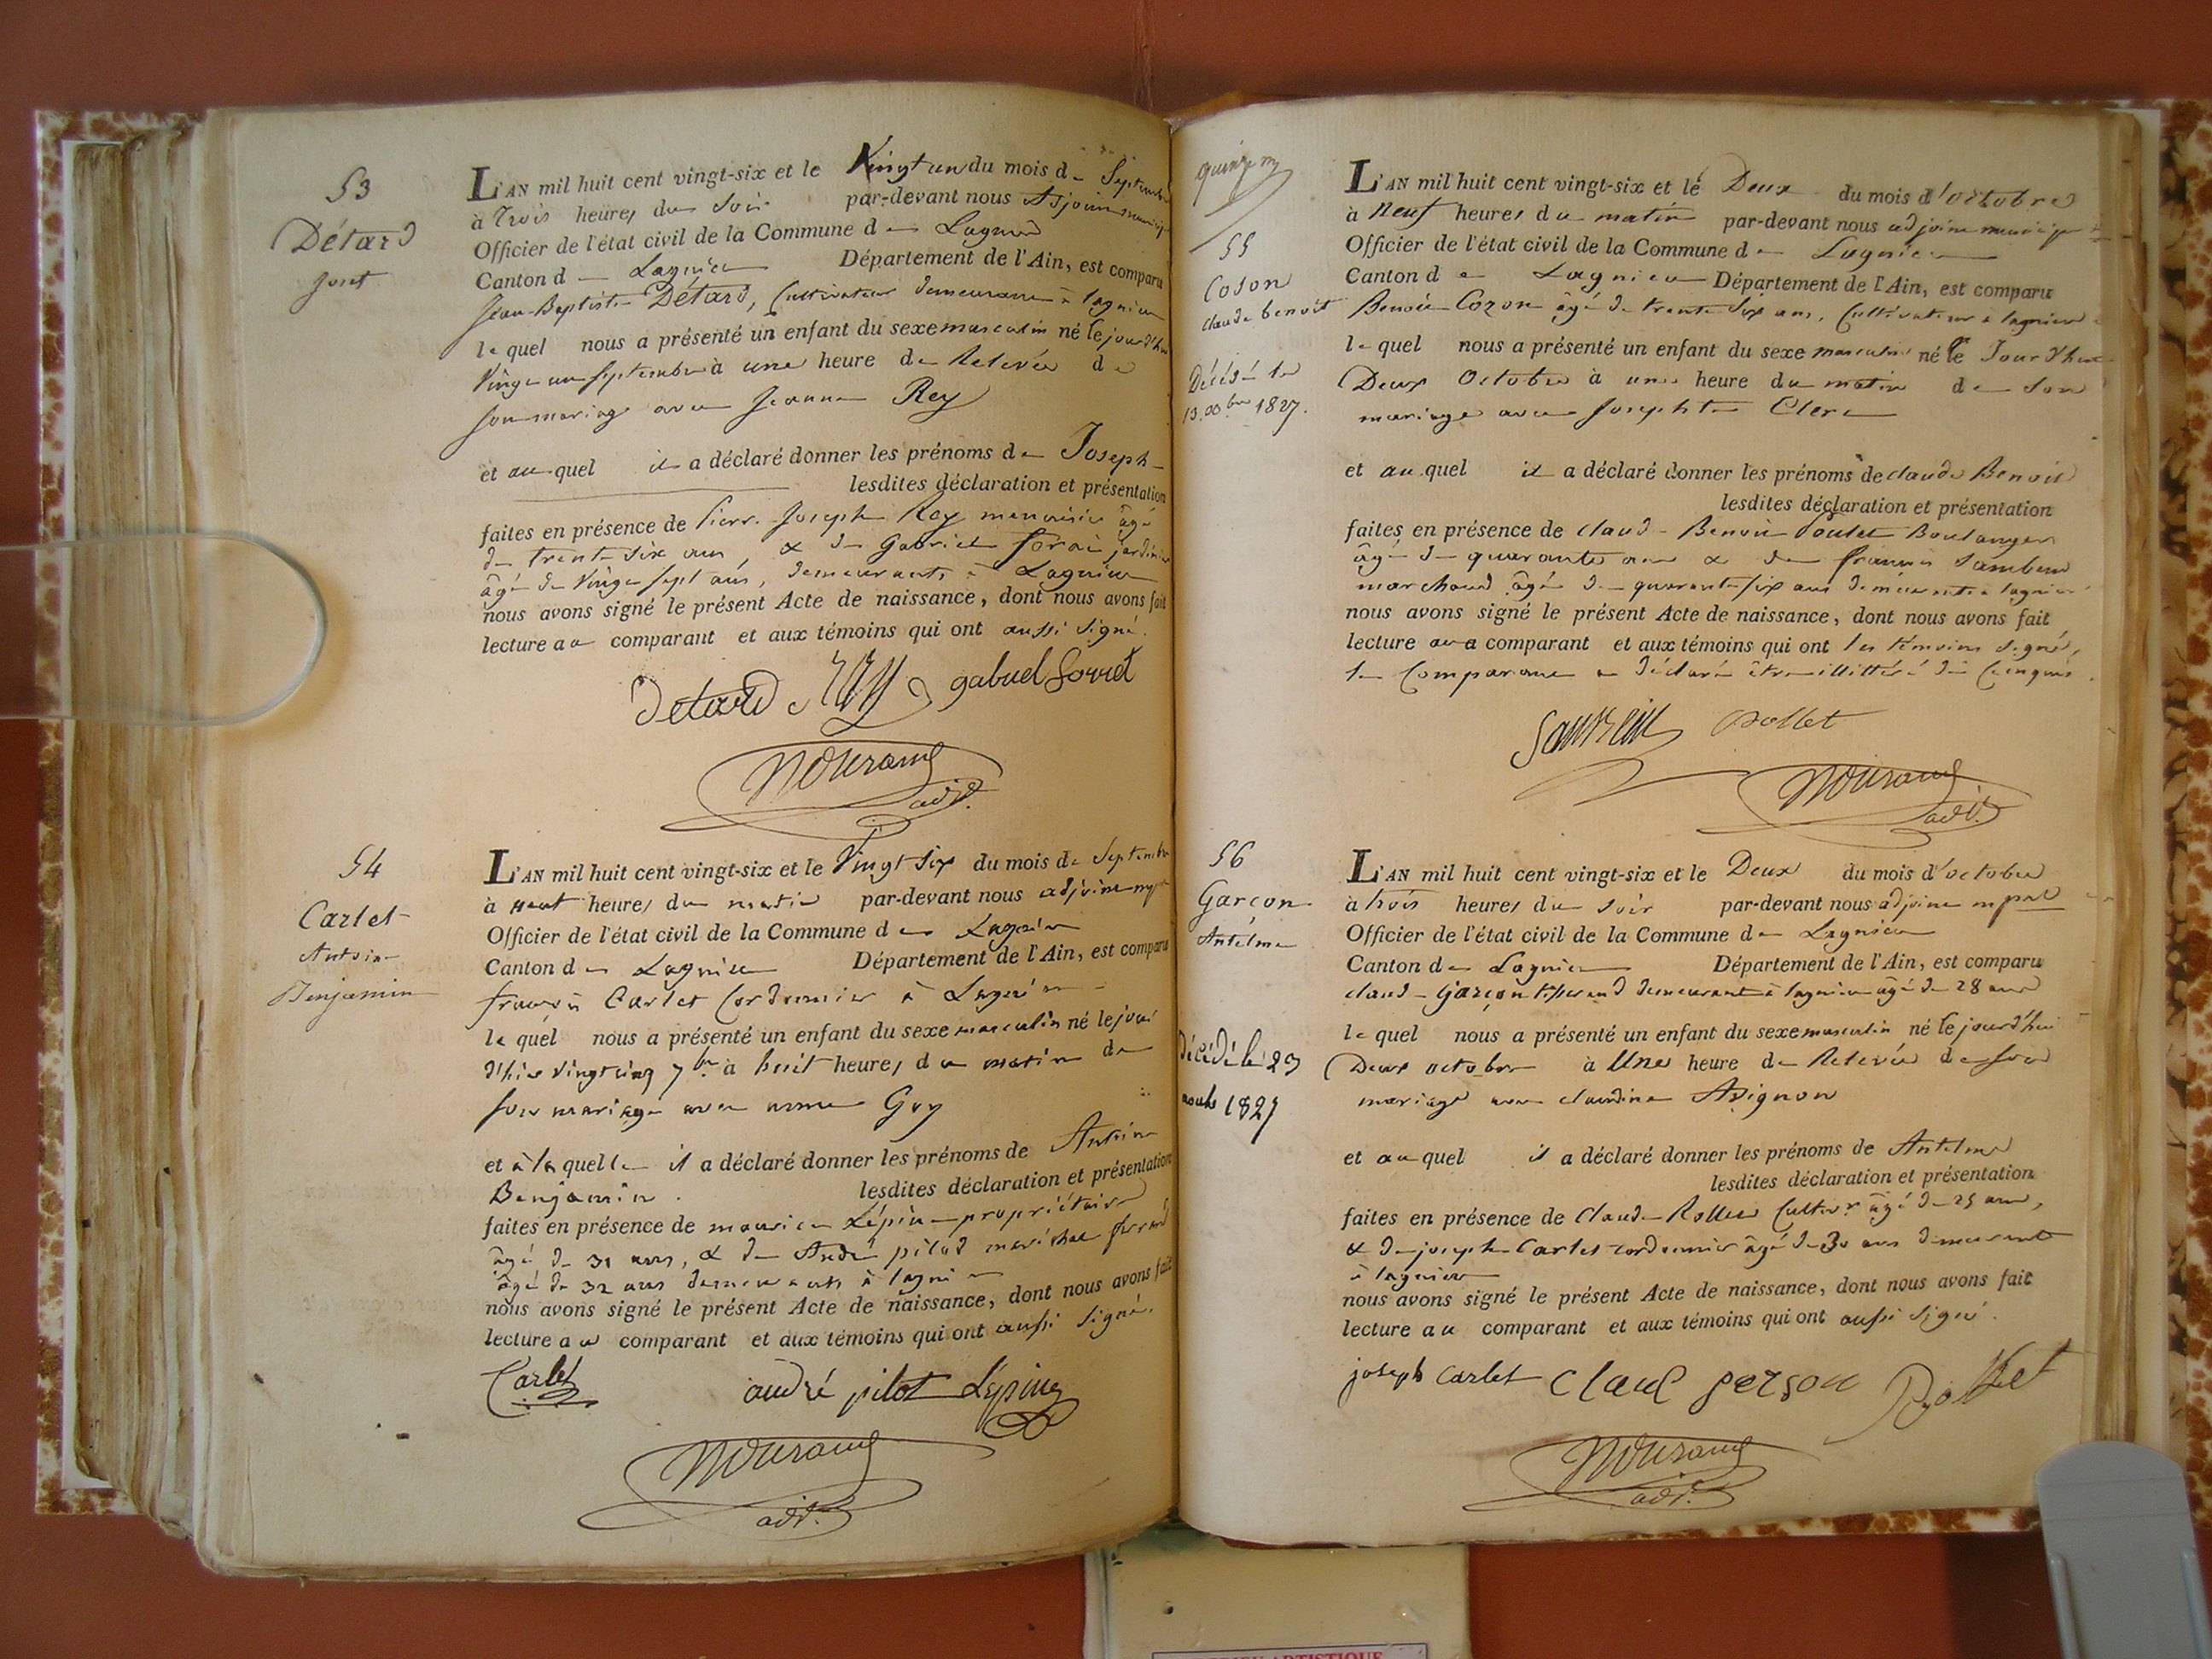 53
Détard
L'AN mil huit cent vingt-six et le Vingt un du mois de Septembre
à Trois heures du Soir par-devant nous Adjoint
Officier de l'état civil de la Commune de Lagnieu
Canton de Lagnieu Département de l'Ain, est comparu
Jean-Baptiste Détard, Cultivateur demeurant à lagnieu
le quel nous a présenté un enfant du sexe masculin né le jourd'hui
Vingt un Septembre à une heure de Relevée de
son mariage avec Jeanne Rey
et au quel il a déclaré donner les prénoms de Joseph
lesdites déclaration et présentation
faites en présence de Pierre Joseph Rey menuisier âgé
de trente six ans, & de Gabriel jardinier
âgé de Vingt sept ans, demeurants à Lagnieu
nous avons signé le présent Acte de naissance, dont nous avons fait
lecture au comparant et aux témoins qui ont aussi signé.
Detard Rey gabriel
adj.
54
Carlet
Antoine
Benjamin
L'AN mil huit cent vingt-six et le Vingt Six du mois de Septembre
à neuf heures du matin par-devant nous adjoint
Officier de l'état civil de la Commune de Lagnieu
Canton de Lagnieu Département de l'Ain, est comparu
françois Carlet Cordonnier à Lagnieu
le quel nous a présenté un enfant du sexe masculin né le jour
d'hier Vingt cinq 7bre à huit heures du matin de
son mariage avec anne Guy
et à la quelle il a déclaré donner les prénoms de Antoine
Benjamin. lesdites déclaration et présentation
faites en présence de maurice Lépine propriétaire
âgé de 31 ans, & de André pilod maréchal ferrand
âgé de 32 ans demeurants à lagnieu
nous avons signé le présent Acte de naissance, dont nous avons fait
lecture au comparant et aux témoins qui ont aussi signé.
Carlet andré pilot Lépine
adj.
55
Coson
Claude benoit
Décédé le
1827.
L'AN mil huit cent vingt-six et le Deux du mois d'octobre
à Neuf heures du matin par-devant nous adjoint municipal
Officier de l'état civil de la Commune de Lagnieu
Canton de Lagnieu Département de l'Ain, est comparu
Benoit Cozon âgé de trente Six ans, Cultivateur à lagnieu
le quel nous a présenté un enfant du sexe masculin né le Jourd'hui
Deux Octobre à une heure du matin de son
mariage avec Josephte Clerc
et au quel il a déclaré donner les prénoms de claude Benoit
lesdites déclaration et présentation
faites en présence de Claude Benoit Boulanger
âgé de quarante ans & de françois
marchand âgé de quarante six ans demeurants à lagnieu
nous avons signé le présent Acte de naissance, dont nous avons fait
lecture au comparant et aux témoins qui ont les témoins signé,
le Comparant a déclaré être illittéré de ce enquis.
adj.
56
Garçon
Antelme
décédé le 29
1827
L'AN mil huit cent vingt-six et le Deux du mois d'octobre
à trois heures du soir par-devant nous adjoint mpal
Officier de l'état civil de la Commune de Lagnieu
Canton de Lagnieu Département de l'Ain, est comparu
claude Garçon tisserand demeurant à lagnieu agé de 28 ans
le quel nous a présenté un enfant du sexe masculin né le jourd'hui
Deux octobre à Une heure de Relevée de son
mariage avec claudine Avignon
et au quel il a déclaré donner les prénoms de Antelme
lesdites déclaration et présentation
faites en présence de Claude Rollet Cultivr âgé de 25 ans,
& de joseph Carlet cordonnier âgé de 30 ans demeurants
à lagnieu
nous avons signé le présent Acte de naissance, dont nous avons fait
lecture au comparant et aux témoins qui ont aussi signé.
joseph Carlet Claud gerson Rollet
adj.
ARTISTIQUE